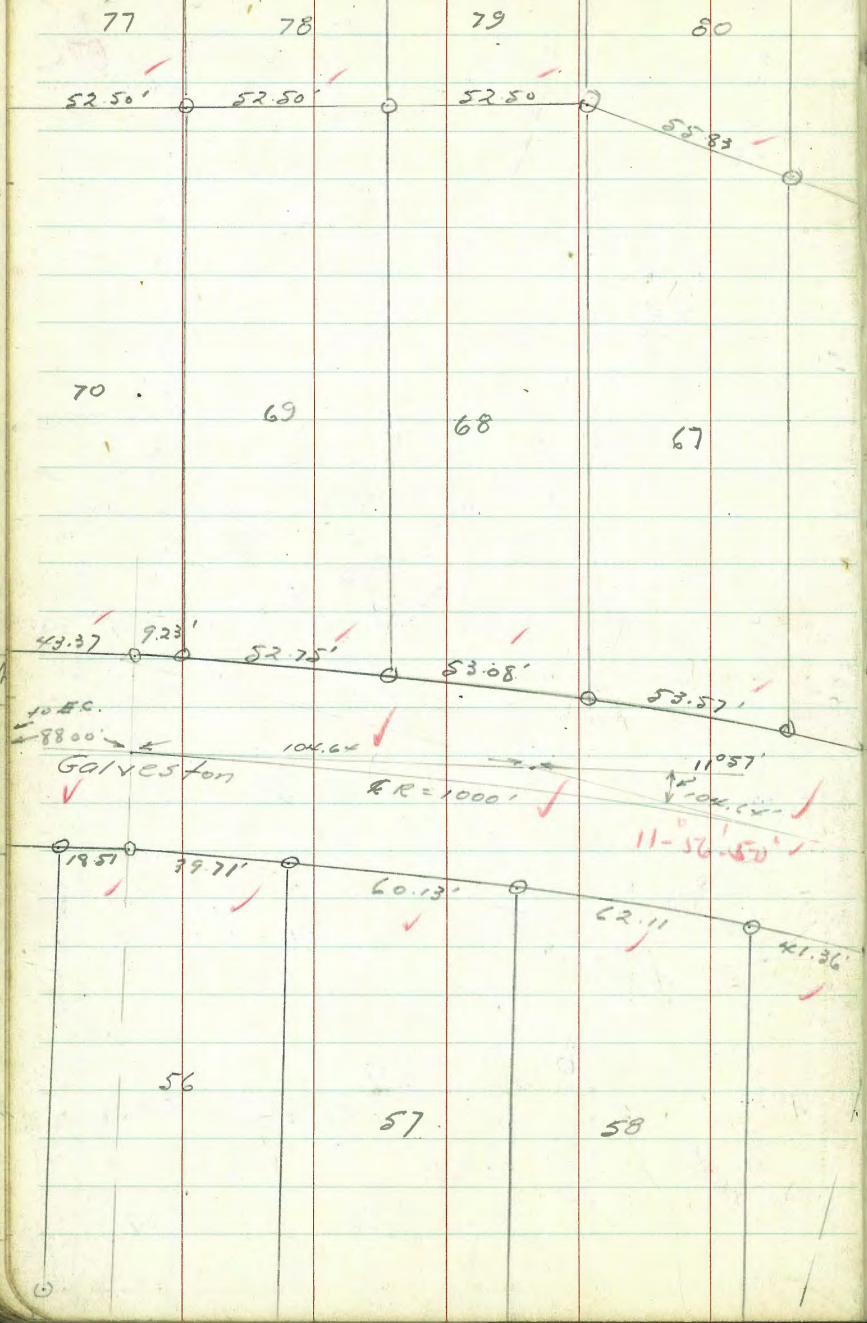 77 78 79 80
52.50' 52.50' 52.50
55.83
70 69 68 67
43.37 9.23' 52.75' 53.08' 53.57'
to E.C.
8800' 104.64 11°57'
Galveston
℄ R = 1000' 104.64
11-56'-50"
18.51 39.71' 60.13' 62.11 41.36'
56 57 58